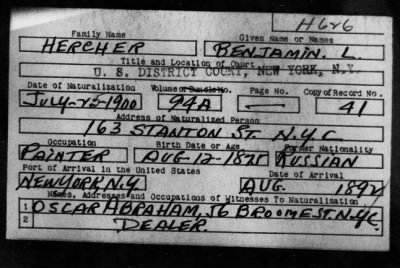 H626
Family Name Given Name or Names
HERCHER BENJAMIN. L.
Title and Location of Court
U. S. DISTRICT COURT, NEW YORK, N.Y.
Date of Naturalization Volume or Bundle No. Page No. Copy of Record No.
JULY-25-1900 94A — 41
Address of Naturalized Person
163 STANTON ST. N.Y.C
Occupation Birth Date or Age Former Nationality
PAINTER AUG-12-1875 RUSSIAN
Port of Arrival in the United States Date of Arrival
NEW YORK N.Y. AUG. 1892
Names, Addresses and Occupations of Witnesses To Naturalization
1 OSCAR ABRAHAM, 56 BROOME ST. N.Y.C.
2 DEALER.